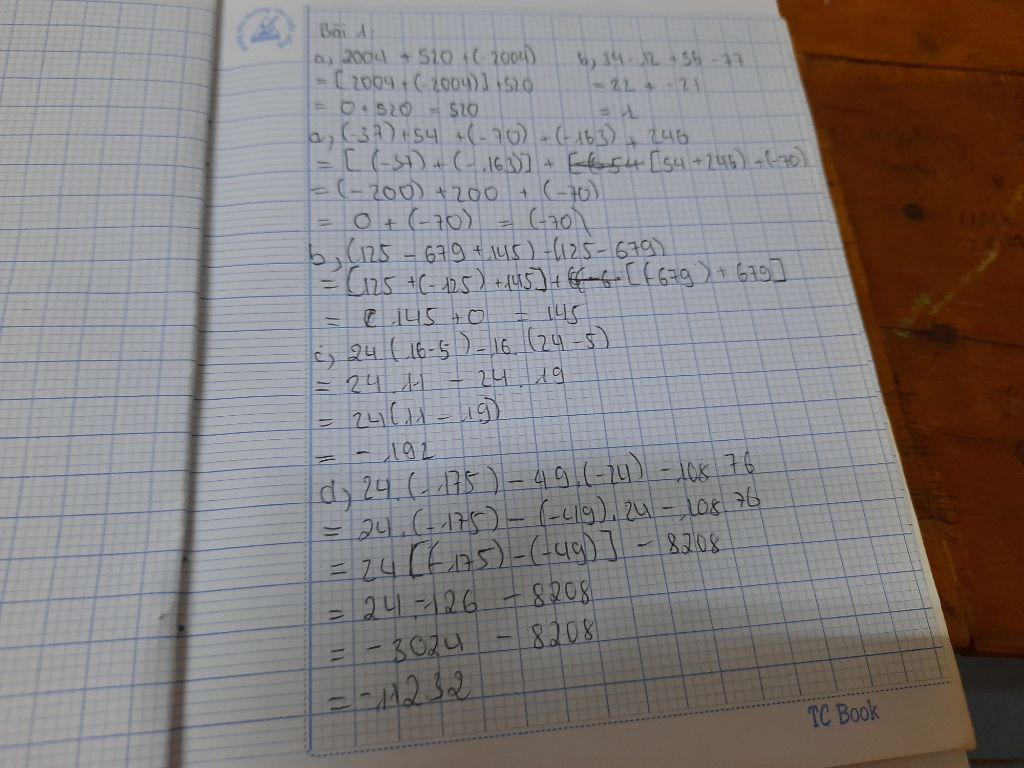 Bài 1:
a, 2004 + 520 + (-2004) b, 34 - 12 + 56 - 77
= [2004 + (-2004)] + 520 = 22 + -21
= 0 + 520 = 520 = 1
a, (-37) + 54 + (-70) + (-163) + 246
= [(-37) + (-163)] + [54 + 246) + (-70)
= (-200) + 200 + (-70)
= 0 + (-70) = (-70)
b, (125 - 679 + 145) - (125 - 679)
= [125 + (-125) + 145] + [(-679) + 679]
= 145 + 0 = 145
c, 24 (16 - 5) - 16. (24 - 5)
= 24 11 - 24. 19
= 24 (11 - 19)
= - 192
d, 24. (-175) - 49. (-24) - 108 76
= 24. (-175) - (-49). 24 - 108 76
= 24 [(-175) - (-49)] - 8208
= 24. -126 - 8208
= -3024 - 8208
= -11232
TC Book